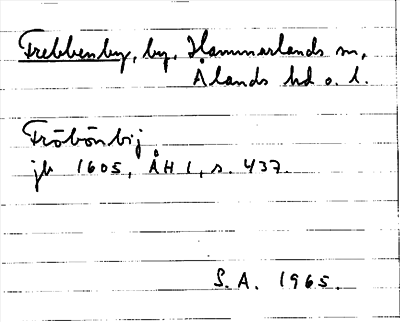 Frebbenby, by, Hammarlands sn,
Ålands hd o. l.
Fröbönbij
jb 1605, ÅH 1, s. 437.
S. A. 1965.